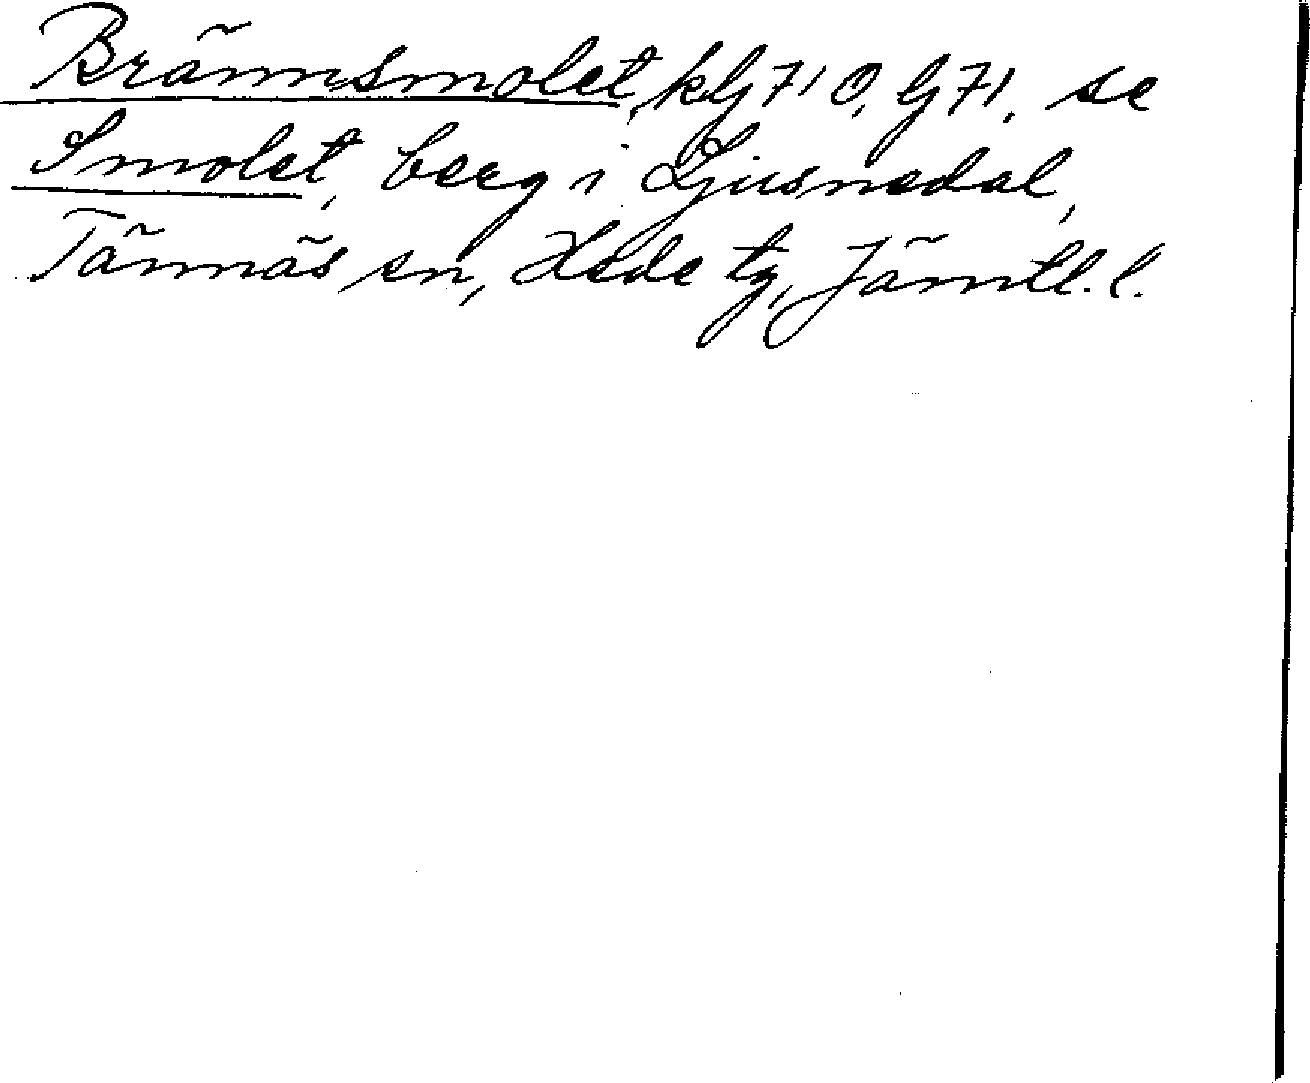 Brännsmolet, kbj 71 O, Gj 71, se
Smolet, berg i Ljusnedal,
Tännäs sn, Hede tg, Jämtl. l.